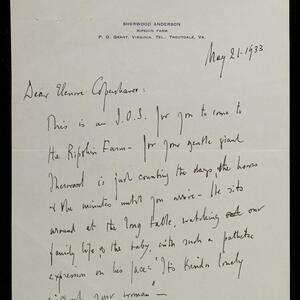 SHERWOOD ANDERSON
RIPSHIN FARM
P. O. GRANT, VIRGINIA. TEL.: TROUTDALE, VA.
May 21-1933
Dear Elenore Copenhaver:
This is an S.O.S. for you to come to
the Ripshin Farm - for your gentle giant
Sherwood is just counting the days the hours
& the minutes until you arrive - He sits
around at the long table, watching our
family life & the baby, with such a pathetic
expression on his face. "Its kinder lonely
without your woman" -